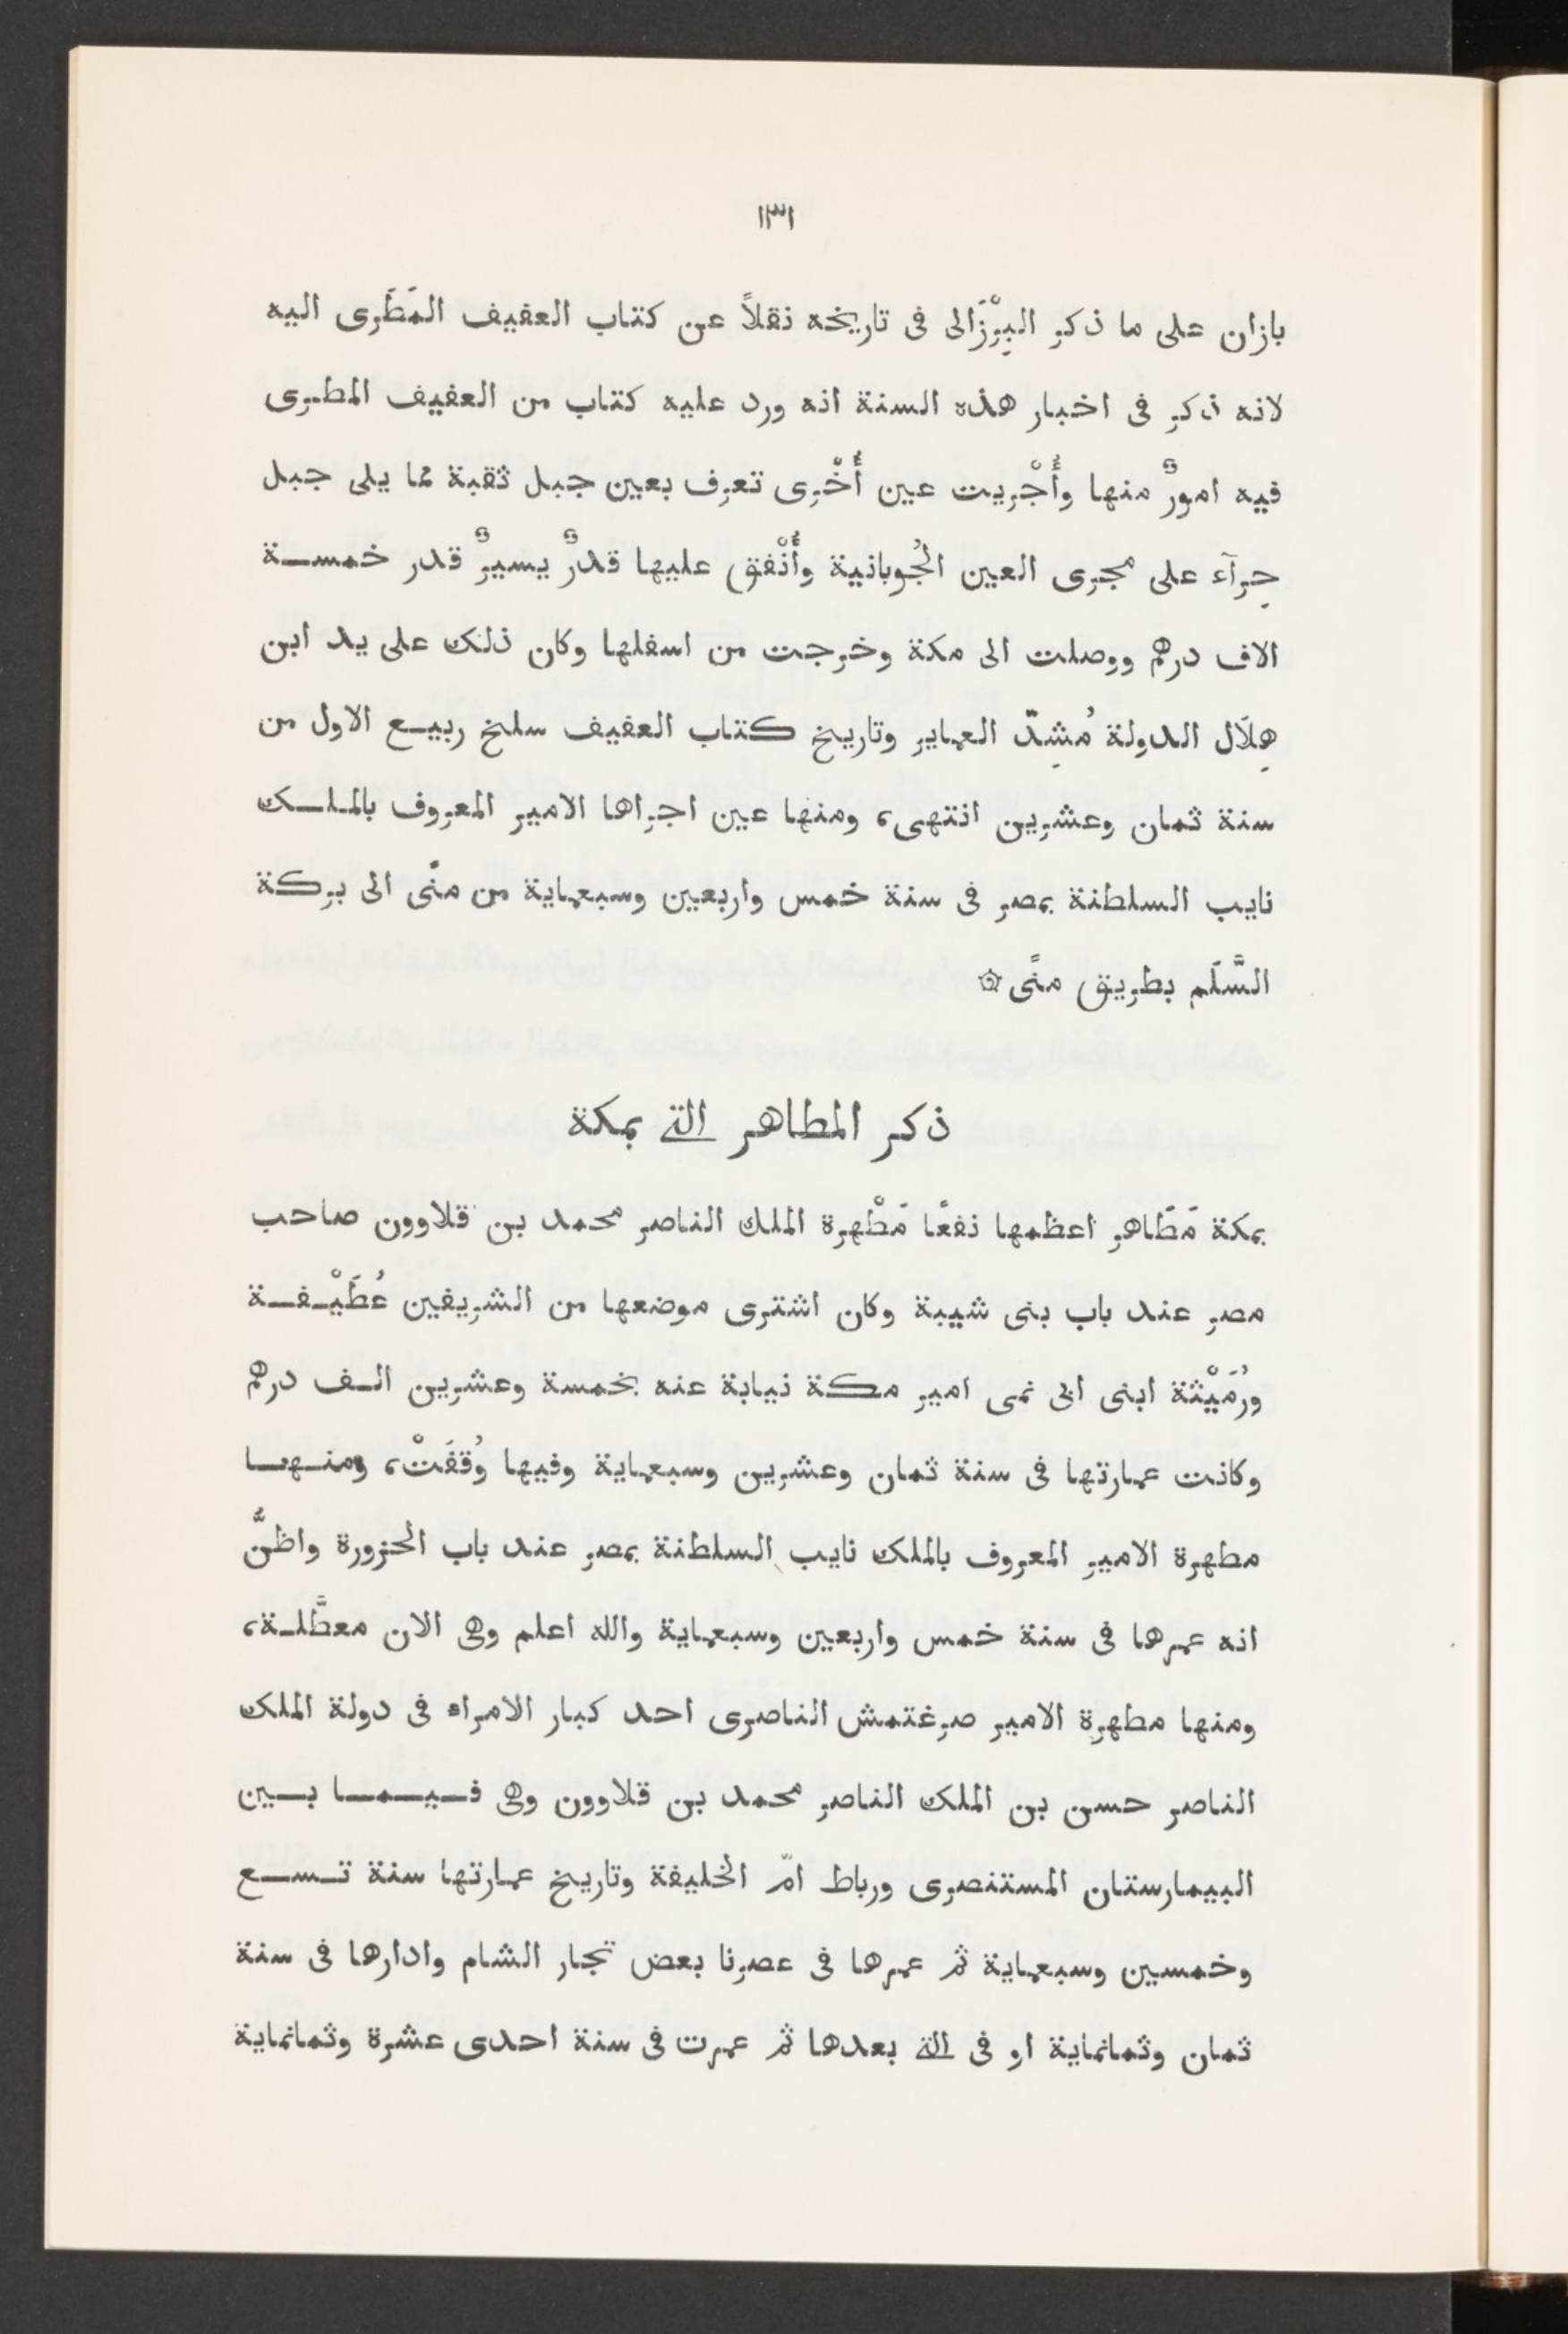 ١٣١
بازان على ما ذكر البِرْزَالى فى تاريخه نقلاً عن كتاب العفيف المَطَرى اليه
لانه ذكر فى اخبار هذه السنة انه ورد عليه كتاب من العفيف المطرى
فيه امورٌ منها وأُجْريت عين أُخْرى تعرف بعين جبل ثقبة مما يلى جبل
حِرآء على مجرى العين الجُوبانية وأُنْفق عليها قدرٌ يسيرٌ قدر خمسة
الاف درهم ووصلت الى مكة وخرجت من اسفلها وكان ذلك على يد ابن
هِلَال الدولة مُشِدّ العماير وتاريخ كتاب العفيف سلخ ربيع الاول من
سنة ثمان وعشرين انتهى، ومنها عين اجراها الامير المعروف بالملك
نايب السلطنة بمصر فى سنة خمس واربعين وسبعماية من منًى الى بركة
السَّلَم بطريق منًى ۞
ذكر المطاهر التى بمكة
بمكة مَطَاهر اعظمها نفعًا مَطْهرة الملك الناصر محمد بن قلاوون صاحب
مصر عند باب بنى شيبة وكان اشترى موضعها من الشريفين عُطَيْفة
ورُمَيْثة ابنى ابى نمى امير مكة نيابة عنه بخمسة وعشرين الف درهم
وكانت عمارتها فى سنة ثمان وعشرين وسبعماية وفيها وُقفَتْ، ومنها
مطهرة الامير المعروف بالملك نايب السلطنة بمصر عند باب الحزورة واظنُّ
انه عمرها فى سنة خمس واربعين وسبعماية والله اعلم وهى الان معطَّلة،
ومنها مطهرة الامير صرغتمش الناصرى احد كبار الامراء فى دولة الملك
الناصر حسن بن الملك الناصر محمد بن قلاوون وهى فيما بين
البيمارستان المستنصرى ورباط امّ الخليفة وتاريخ عمارتها سنة تسع
وخمسين وسبعماية ثم عمرها فى عصرنا بعض تجار الشام وادارها فى سنة
ثمان وثمانماية او فى التى بعدها ثم عمرت فى سنة احدى عشرة وثمانماية